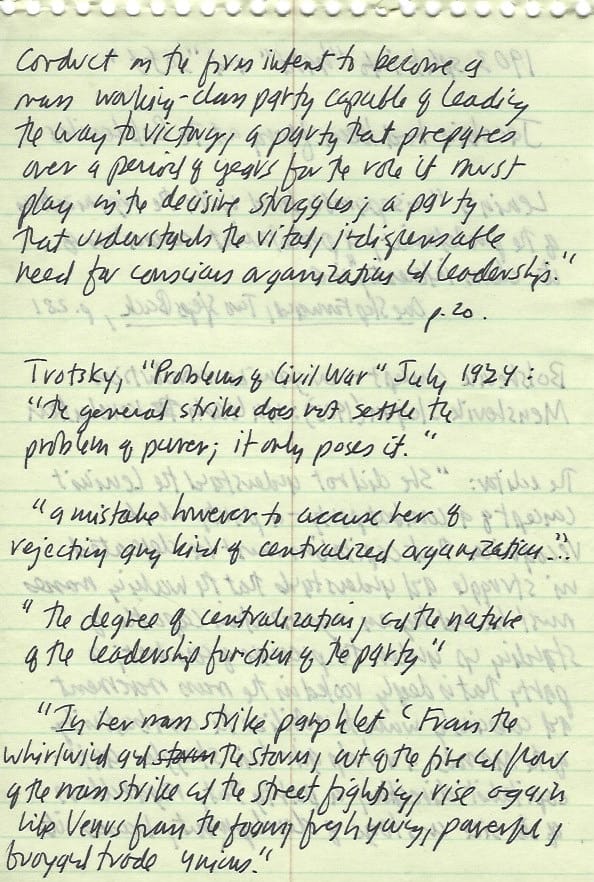 conduct in the firm intent to become a
mass working-class party capable of leading
the way to victory, a party that prepares
over a period of years for the role it must
play in the decisive struggles; a party
that understands the vital, indispensable
need for conscious organization and leadership."
p. 20.
Trotsky, "Problems of Civil War" July 1924:
"the general strike does not settle the
problem of power; it only poses it."
"a mistake however to accuse her of
rejecting any kind of centralized organization..."
"the degree of centralization, and the nature
of the leadership function of the party"
"In her mass strike pamphlet 'From the
whirlwind and the storm, out of the fire and flow
of the mass strike and the street fighting, rise again
like Venus from the foam, fresh, young, powerful,
buoyant trade unions."